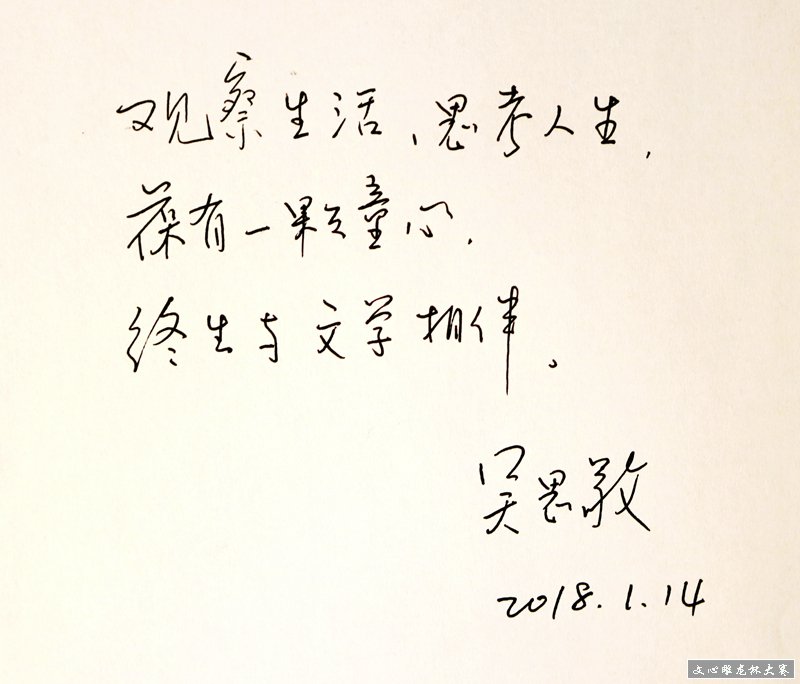 观察生活、思考人生，
葆有一颗童心，
终生与文学相伴。
吴思敬
2018.1.14
文心雕龙杯大赛